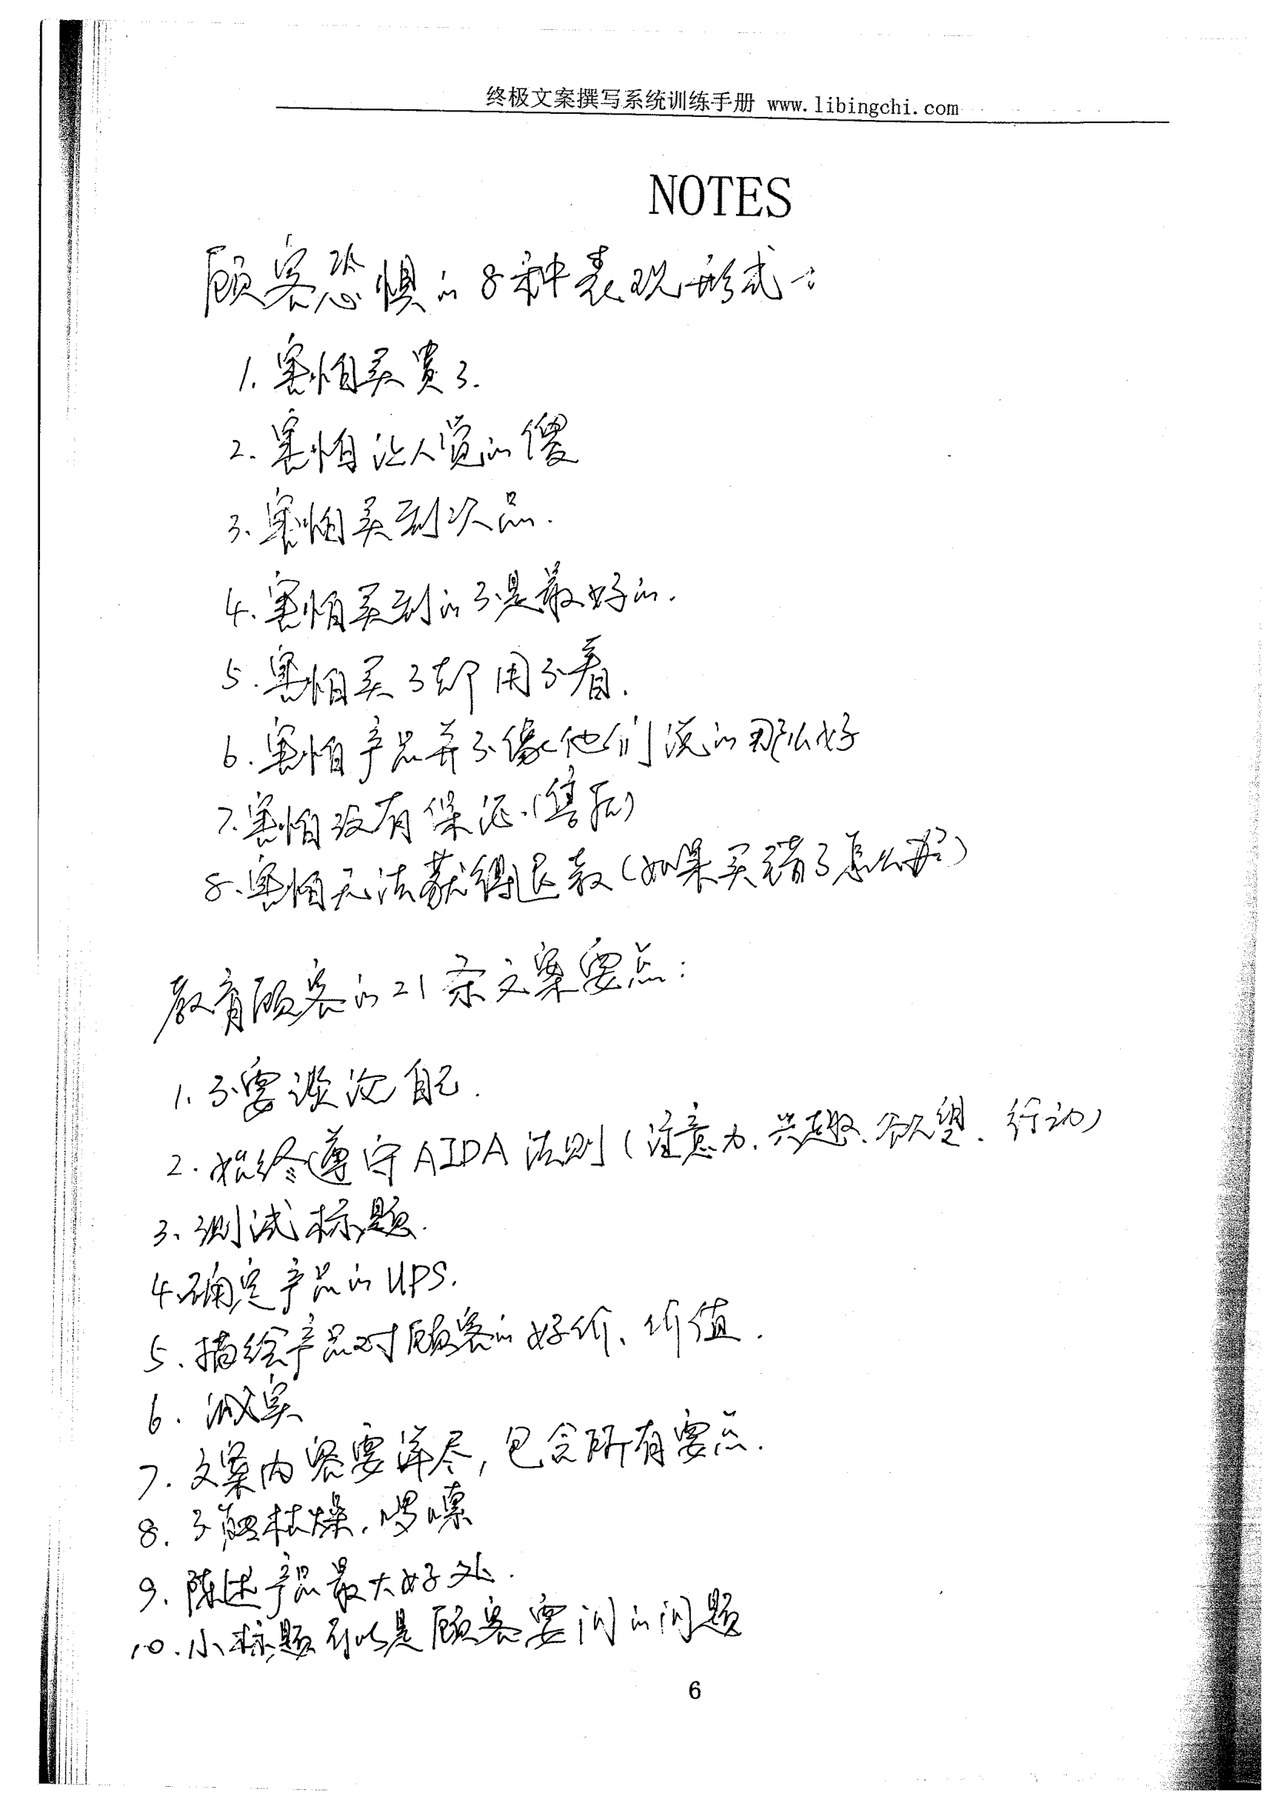 终极文案撰写系统训练手册 www.libingchi.com
NOTES
顾客恐惧的8种表现形式:
1. 害怕买贵了.
2. 害怕让人觉的傻
3. 害怕买到次品.
4. 害怕买到的不是最好的.
5. 害怕买了却用不着.
6. 害怕产品并不像他们说的那么好
7. 害怕没有保证.(售后)
8. 害怕无法获得退款(如果买错了怎么办?)
教育顾客的21条文案要点:
1. 不要谈论自己.
2. 始终遵守AIDA法则(注意力、兴趣、欲望、行动)
3. 测试标题.
4. 确定产品的UPS.
5. 描绘产品对顾客的好价、价值.
6. 诚实
7. 文案内容要详尽,包含所有要点.
8. 不能枯燥、啰嗦
9. 陈述产品最大好处.
10. 小标题可以是顾客要问的问题
6